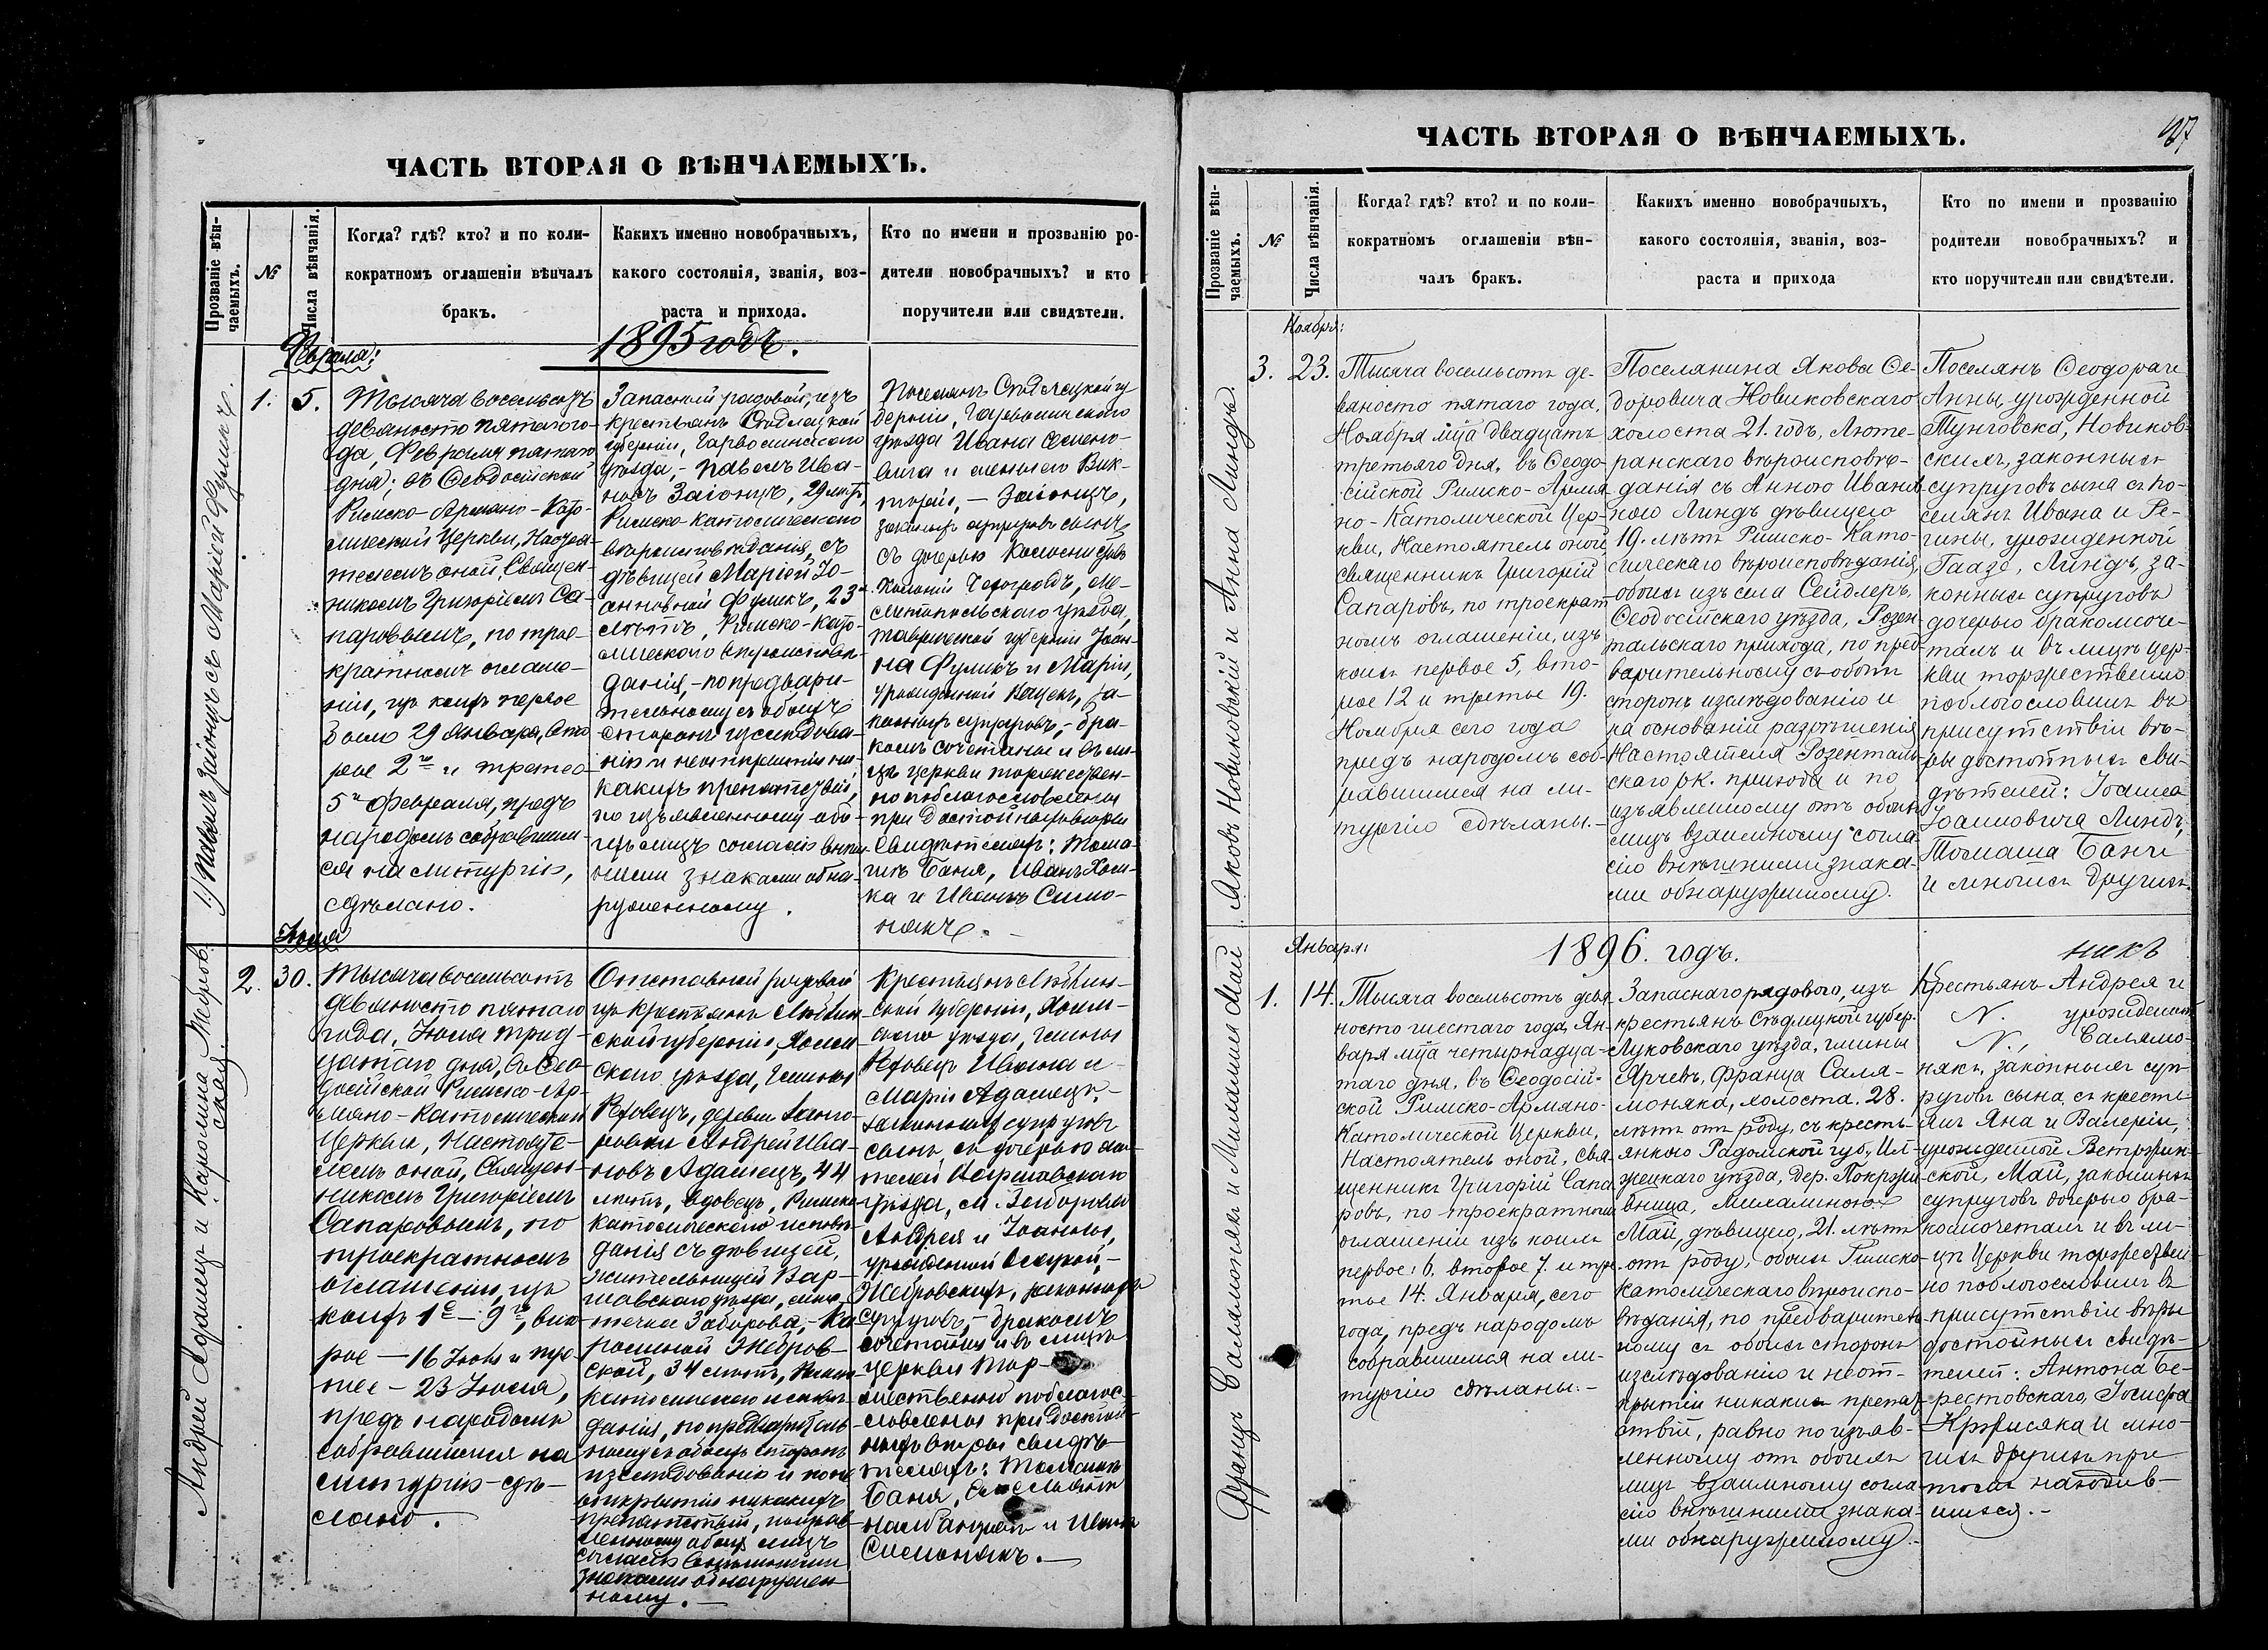 ЧАСТЬ ВТОРАЯ О ВѢНЧАЕМЫХЪ.
Прозваніе вѣн-
чаемыхъ.
№
Числа вѣнчанія.
Когда? гдѣ? кто? и по коли-
кократномъ оглашеніи вѣнчалъ
бракъ.
Какихъ именно новобрачныхъ,
какого состоянія, званія, воз-
раста и прихода.
Кто по имени и прозванію ро-
дители новобрачныхъ? и кто
поручители или свидѣтели.
1895 годъ.
Февраля:
1.
5.
Тысяча восемьсотъ
девяносто пятаго го-
да, Февраля пятаго
дня; въ Ѳеодосійской
Римско-Армяно-Като-
лической Церкви, Настоя-
телемъ оной, Священ-
никомъ Григоріемъ Са-
паровымъ, по трое-
кратномъ оглаше-
ніи, изъ коихъ первое
было 29 Января, вто
рое 2го и третье
5го Февраля, предъ
народомъ собравшим-
ся на литургію,
сдѣлано.
Запасный рядовой, изъ
крестьянъ Сѣдлецкой
губерніи, Гарволинскаго
уѣзда, - Павелъ Ива-
новъ Заіонцъ, 29 лѣтъ,
Римско-католическаго
вѣроисповѣданія, съ
дѣвицей Маріей Іо-
анновной Фуликъ, 23
лѣтъ, Римско-като-
лическаго вѣроисповѣ-
данія, - по предвари-
тельному съ обоихъ
сторонъ изслѣдова-
нію и неоткрытіи ни-
какихъ препятствій,
по изъявленному обо-
ихъ лицъ согласію внѣш-
ними знаками обна-
руженному.
Поселянъ Сѣдлецкой гу
берніи, Гарволинскаго
уѣзда Ивана Семено-
вича и жены его Вик-
торіи, - Заіонцъ,
законныхъ супруговъ сынъ
съ дочерью колонистовъ
Мелитопольскаго уѣзда,
таврической губерніи Іоан-
на Фуликъ и Маріи,
за-
конныхъ супруговъ, - бра-
комъ сочетаны и въ ли-
цѣ церкви торжествен-
но поблагословлены
при достойныхъ вѣры
свидѣтеляхъ: Тома-
шѣ Баня, Иванъ
ка и Иваномъ Симо-
някъ. -
1) Павелъ Заіонцъ съ Маріей Фуликъ.
Іюля
2.
30.
Тысяча восемьсотъ
девяносто пятаго
года, Іюля трид-
цатаго дня, въ Ѳео-
досійской Римско-Ар-
мяно-Католической
Церкви, Настояте-
лемъ оной, Священ-
никомъ Григоріемъ
Сапаровымъ, по
троекратномъ
оглашеніи, изъ
коихъ 1е - 9го, вто
рое - 16 Іюля и тре-
тее - 23 Іюля,
предъ народомъ
собравшимся на
литургію - сдѣ-
лано.
Отставной рядовой
изъ крестьянъ Люблин
ской губерніи, Холм
скаго уѣзда, Гмины
деревни
Андрей Ива-
новъ Адамецъ, 44
лѣтъ, вдовецъ, Римско
католическаго исповѣ-
данія съ дѣвицей,
жительницей Вар-
шавскаго уѣзда, мѣс-
течка Заборова, - Ка
ролиной Жебров-
ской, 34 лѣтъ, Римско
католическаго исповѣ-
данія, по предваритель
ному съ обоихъ сторонъ
изслѣдованію и по не
открытіи никакихъ
препятствій, изъяв
ленному обоихъ лицъ
согласію внѣшними
знаками обнаружен-
ному. -
Крестьянъ Люблин-
ской губерніи, Холм-
скаго уѣзда, гмины
Ивана и
Маріи Адамецъ, -
законныхъ супруговъ
сынъ, съ дочерью жи-
телей Варшавскаго
уѣзда, м. Заборова
Андрея и Іоанны,
урожденной
Жебровскихъ, законныхъ
супруговъ, - бракомъ
сочетаны и въ лицѣ
церкви тор-
жественно поблагос-
ловлены при достой-
ныхъ вѣры свидѣ-
теляхъ: Томашѣ
Баня,
и Иванъ
Симонякъ. -
Андрей Адамецъ и Каролина Жебров-
ская.
ЧАСТЬ ВТОРАЯ О ВѢНЧАЕМЫХЪ.
Прозваніе вѣн-
чаемыхъ.
№
Числа вѣнчанія.
Когда? гдѣ? кто? и по коли-
кократномъ оглашеніи вѣн-
чалъ бракъ.
Какихъ именно новобрачныхъ,
какого состоянія, званія, воз-
раста и прихода
Кто по имени и прозванію
родители новобрачныхъ? и
кто поручители или свидѣтели.
Ноября:
3.
23.
Тысяча восемьсотъ де-
вяносто пятаго года,
Ноября мца двадцать
третьяго дня, въ Ѳеодо-
сійской Римско-Армя-
но-Католической Цер-
кви, Настоятель оной
священникъ Григорій
Сапаровъ, по троекрат-
номъ оглашеніи, изъ
коихъ первое 5, вто-
рое 12 и третье 19.
Ноября сего года
предъ народомъ соб-
равшимся на ли-
тургію сдѣланы. -
Поселянина Якова Ѳе-
доровича Новиковскаго
холоста 21. годъ, Люте-
ранскаго вѣроисповѣ-
данія съ Анною Иванов
ною Линдъ дѣвицею
19. лѣтъ Римско-Като-
лическаго вѣроисповѣданія,
обоихъ изъ села Сейдлеръ,
Ѳеодосійскаго уѣзда, Розен-
тальскаго прихода, по пред-
варительному съ обоихъ
сторонъ изслѣдованію и
на основаніи разрѣшенія
Настоятеля Розенталь
скаго рк. прихода и по
изъявленному отъ обоихъ
лицъ взаимному согла
сію внѣшними знака-
ми обнаруженному.
Поселянъ Ѳеодора и
Анны, урожденной
Тунговска, Новиков-
скихъ, законныхъ
супруговъ сына съ по-
селянъ Ивана и Ре-
гины, урожденной
Гаазе, Линдъ, за-
конныхъ супруговъ
дочерью бракомсоче-
талъ и въ лицѣ цер-
кви торжественно
поблагословилъ въ
присутствіи вѣ-
ры достойныхъ сви-
дѣтелей: Іоанна
Іоанновича Линдъ,
Томаша Банч
и многихъ другихъ.
Яковъ Новиковскій и Анна Линдъ.
Января:
1896. годъ.
1.
14.
Тысяча восемьсотъ девя
носто шестаго года, Ян-
варя мца четырнадца-
таго дня, въ Ѳеодосій-
ской Римско-Армяно-
Католической Церкви,
Настоятель оной, свя
щенникъ Григорій Сапа
ровъ, по троекратномъ
оглашеніи изъ коихъ
первое: 6. второе 7. и тре
тье 14. Января, сего
года, предъ народомъ
собравшимся на ли-
тургію сдѣланы. -
Запаснаго рядового, изъ
крестьянъ Сѣдлецкой губер.
Луковскаго уѣзда, гмины
Ярчевъ, Франца Саля-
моняка, холоста. 28.
лѣтъ отъ роду, съ кресть-
янкою Радомской губ., Ил-
жецкаго уѣзда, дер. Покржи
вница, Михалиною
Май, дѣвицею, 21. лѣтъ
отъ роду, обоихъ Римско
католическаго вѣроиспо-
вѣданія, по предваритель
ному съ обоихъ сторонъ
изслѣдованію и неот-
крытіи никакихъ препят
ствій, равно по изъяв-
ленному отъ обоихъ
лицъ взаимному согла
сію внѣшними знака-
ми обнаруженному. -
никъ
Крестьянъ Андрея и
N. урожденной
N., Салямо-
някъ, законныхъ суп-
руговъ сына, съ кресть
янъ Яна и Валеріи,
урожденной Ветржин-
ской, Май, законныхъ
супруговъ дочерью бра-
комсочеталъ и въ ли-
цѣ Церкви торжествен-
но поблагословилъ въ
присутствіи вѣры
достойныхъ свидѣ-
телей: Антона Бе-
рестовскаго, Іосифа
Кржисяка и мно-
гихъ другихъ при
томъ находив-
шихся. -
Францъ Салямонякъ и Михалина Май